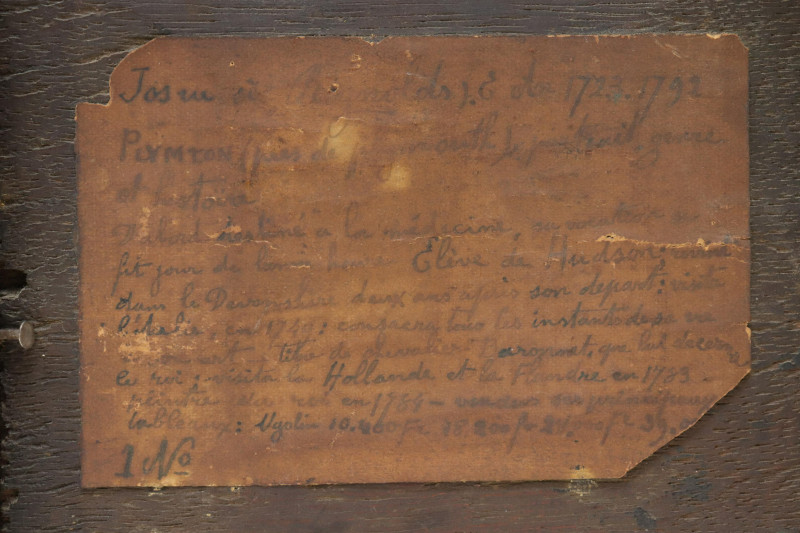 Josu Reynolds). E 1723.1792
PLYMTON (près de plymouth), portrait, genre
et histoire
D'abord destiné à la médecine, sa vocation se
fit jour de bonne heure Elève de Hudson; revint
dans le Devonshire deux ans après son départ; visita
l'Italie, en 1749; consacra tous les instants de sa vie
titre de chevalier Baronnet, que lui décerne
le roi; visita la Hollande et la Flandre en 1783 -
peintre du roi en 1784 - vendeur ses principaux
tableaux: Ugolin 10.400 Fr
1 No